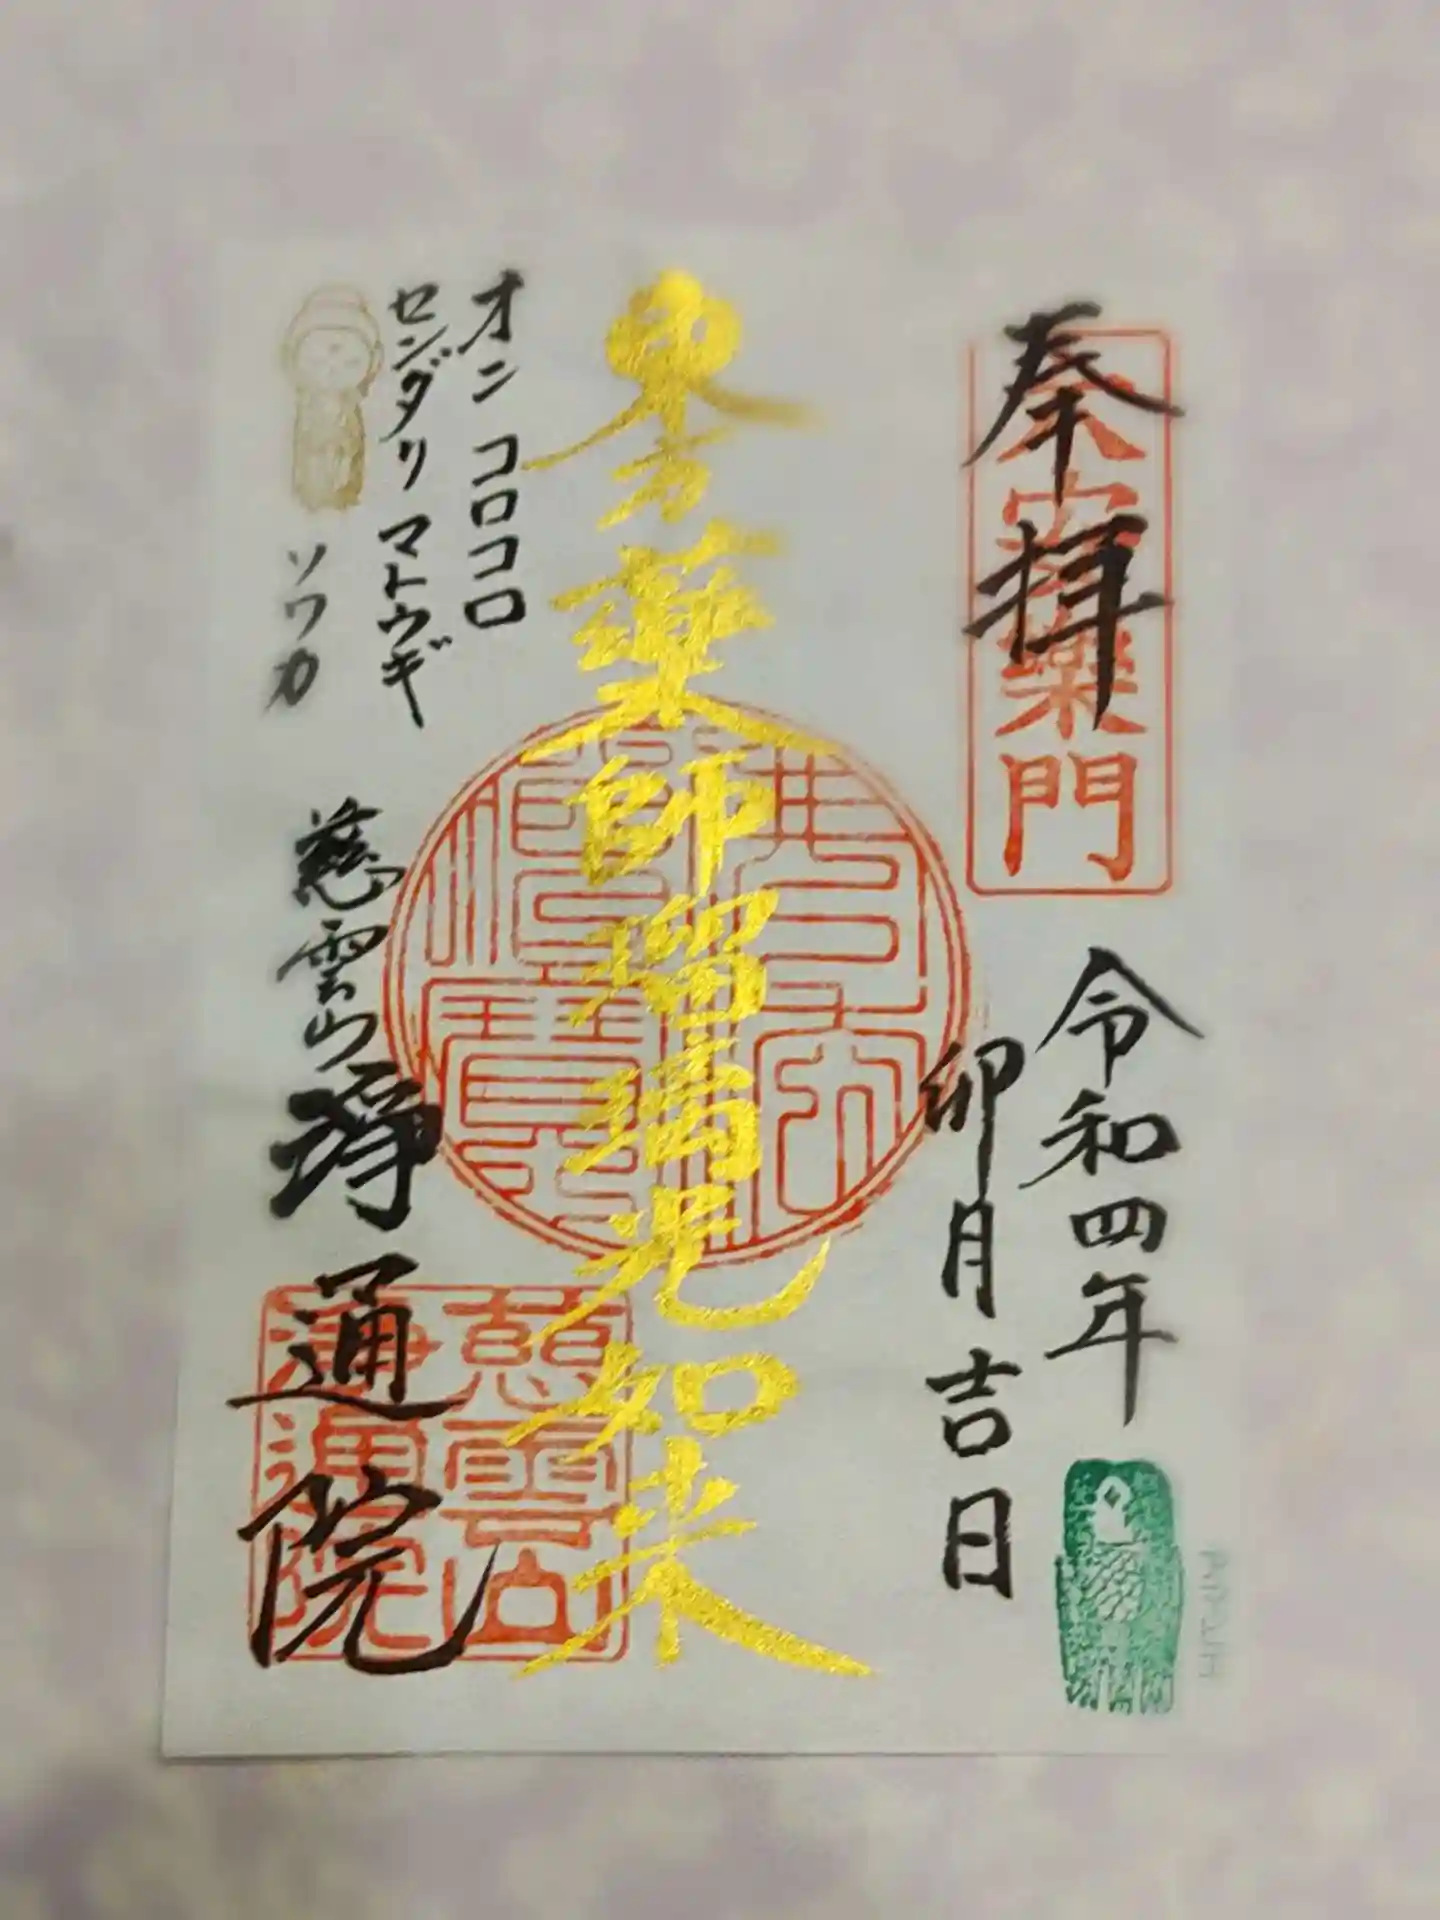 奉拝
大安樂門
令和四年
卯月吉日
東方薬師瑠璃光如来
オン コロコロ
センダリ マトウギ
ソワカ
慈雲山
浄通院
慈雲山
浄通院